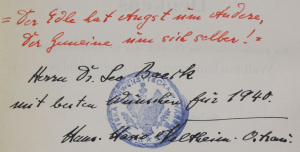 = Der Edle hat Angst um Andere,
Der Gemeine um sich selber! =
Herrn Dr. Leo Baeck
mit besten Wünschen für 1940.
Hans-Hasso Veltheim-Ostrau